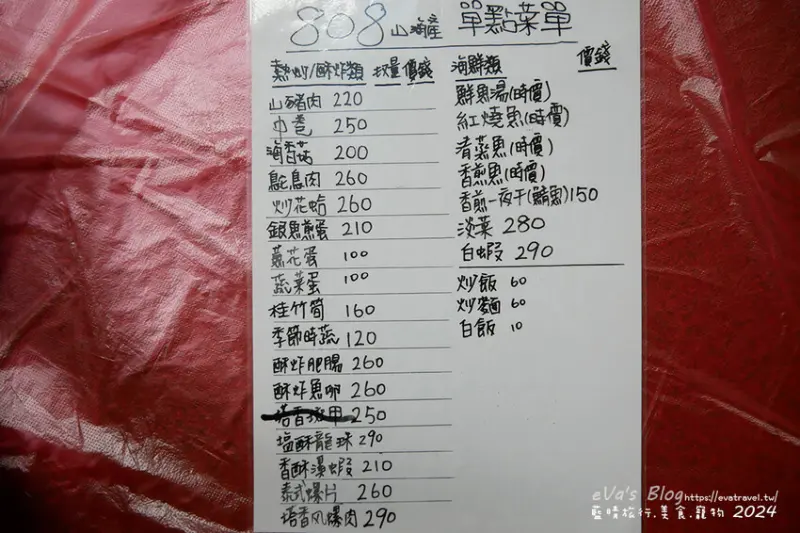 808 山海產 單點菜單
熱炒/酥炸類 數量 價錢
山豬肉 220
中卷 250
海香菇 200
鴕鳥肉 260
炒花蛤 260
銀魚煎蛋 210
蔥花蛋 100
蔬菜蛋 100
桂竹筍 160
季節時蔬 120
酥炸肥腸 260
酥炸魚卵 260
塔香 甲 250
塩酥龍珠 290
香酥溪蝦 210
泰式 片 260
塔香風螺肉 290
海鮮類 價錢
鮮魚湯(時價)
紅燒魚(時價)
清蒸魚(時價)
香煎魚(時價)
香煎一夜干(鯖魚)150
淡菜 280
白蝦 290
炒飯 60
炒麵 60
白飯 10
eVa's Blog
https://evatravel.tw/
藍晴旅行.美食.寵物 2024